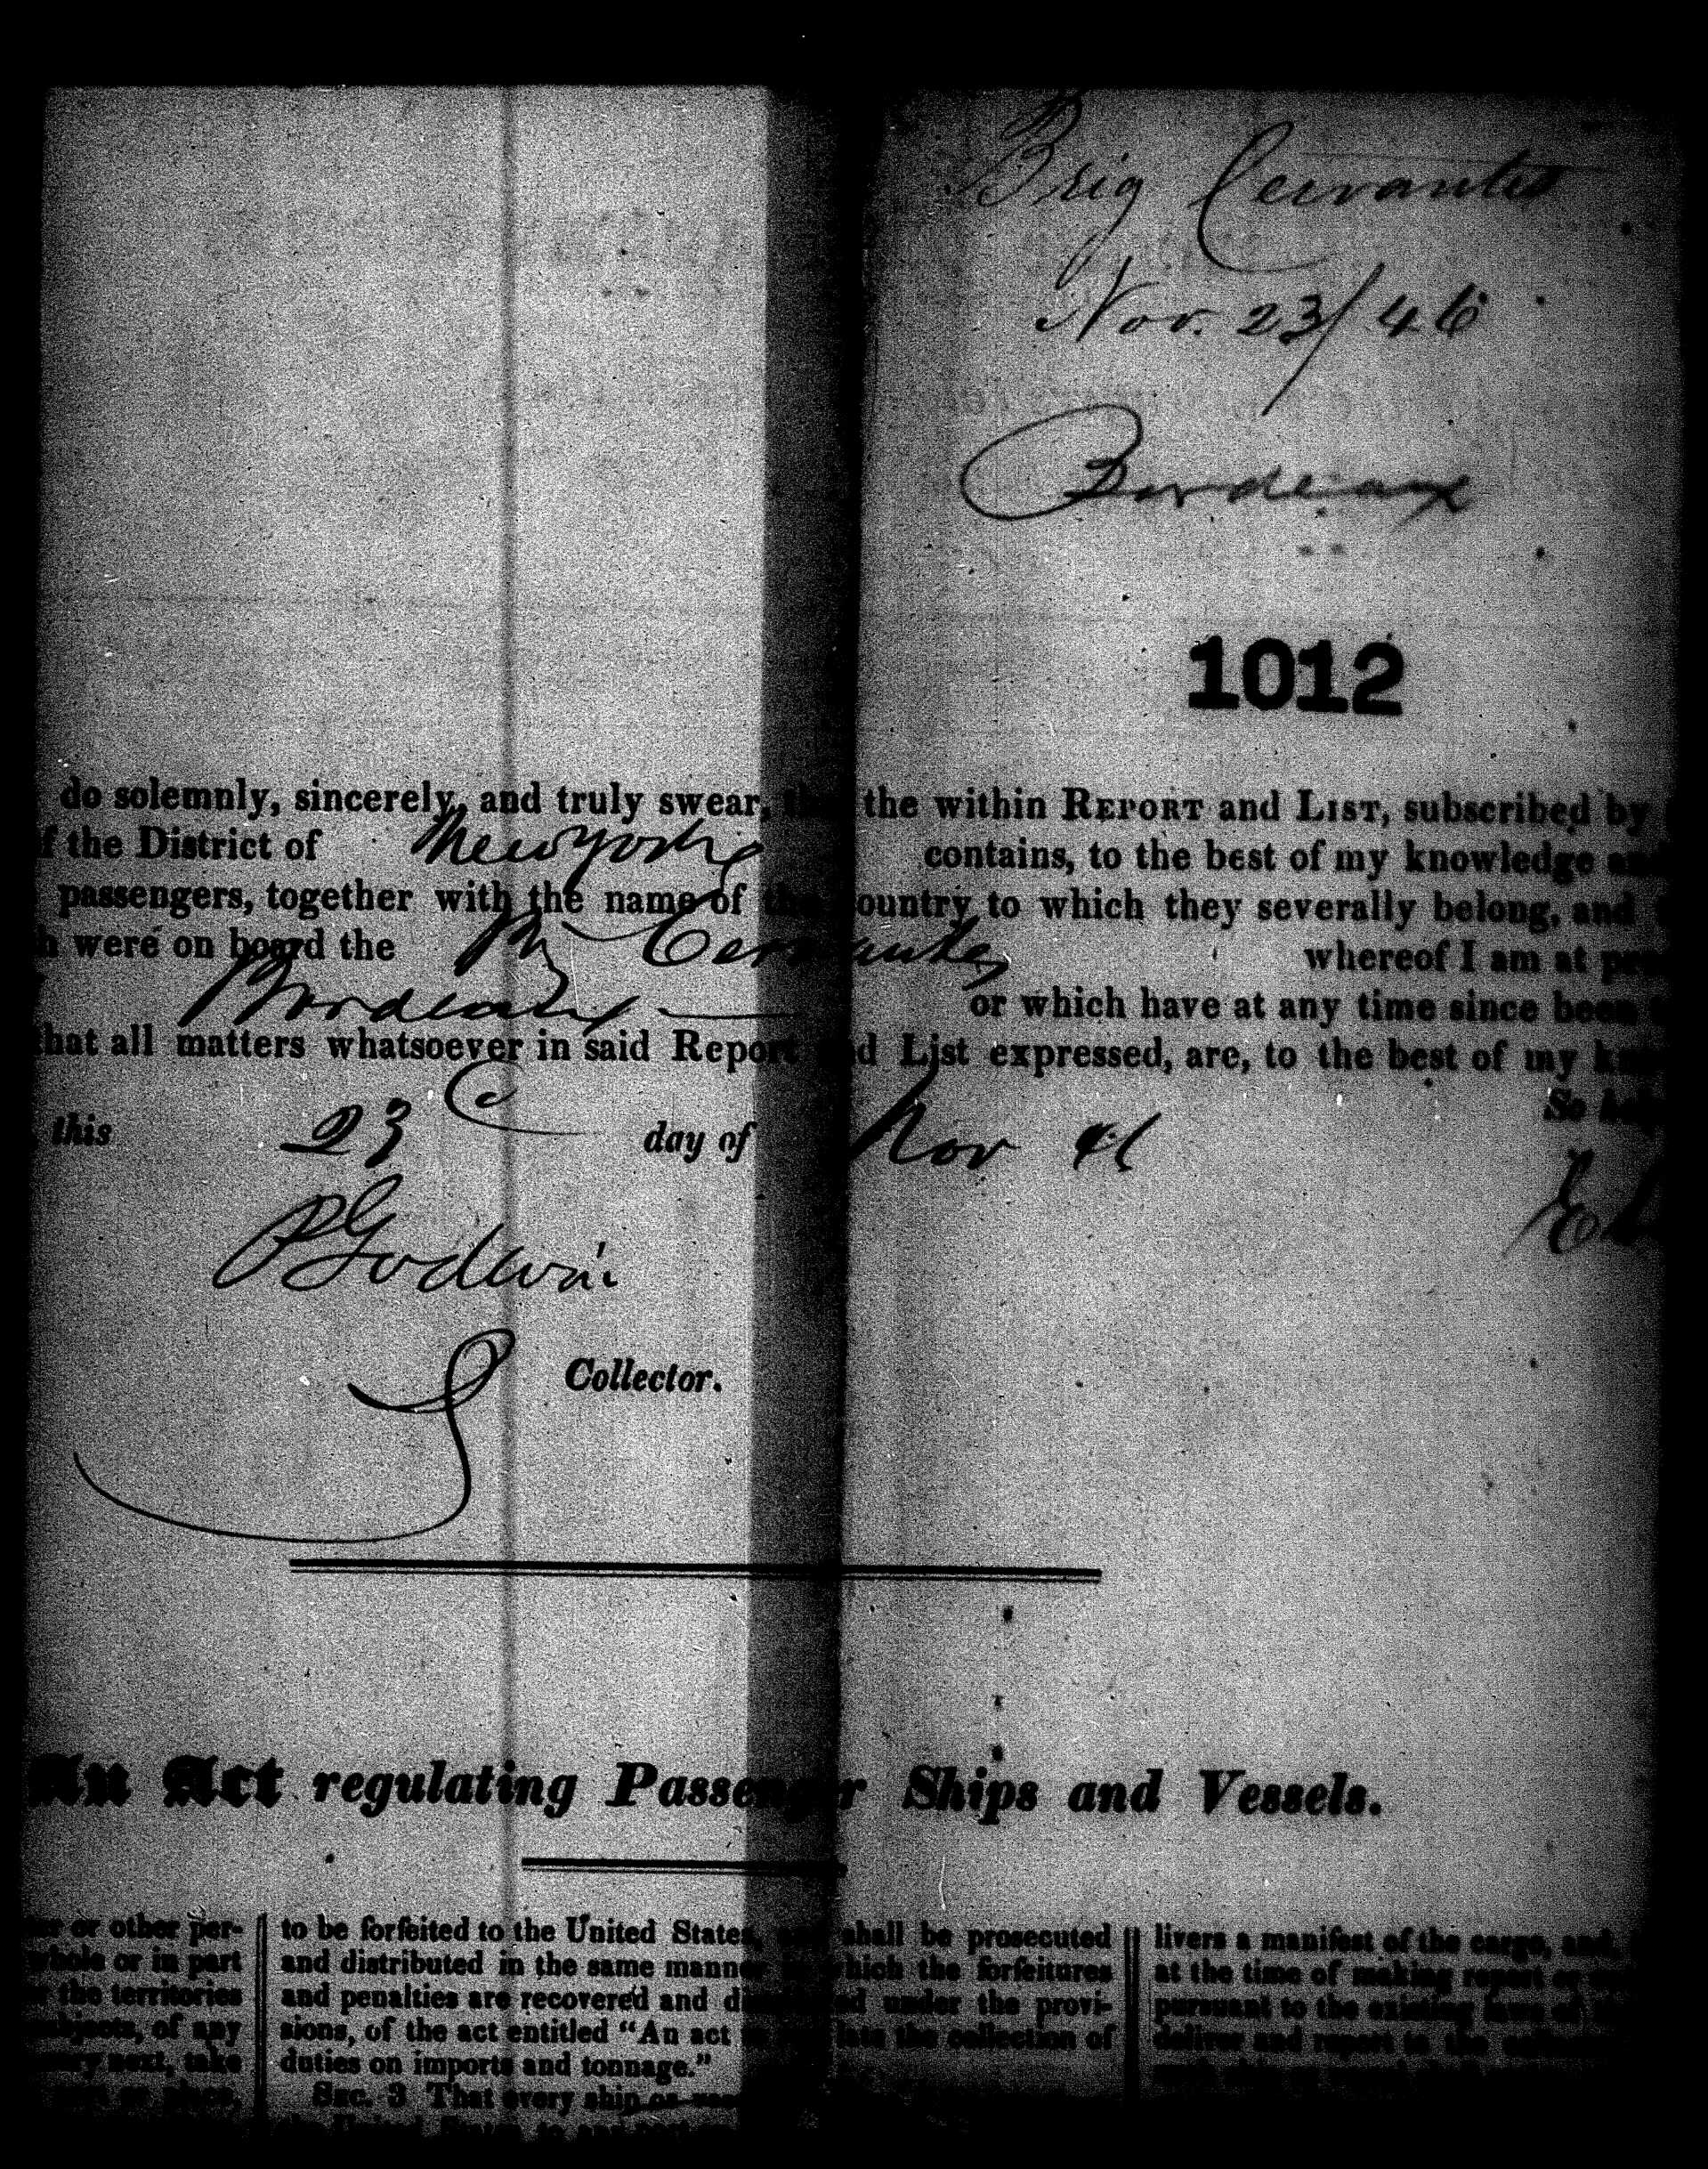 Brig Cervantes
Nov. 23/46
Bordeaux
1012
do solemnly, sincerely, and truly swear, the within REPORT and LIST, subscribed by
f the District of New York contains, to the best of my knowledge
passengers, together with the name of the country to which they severally belong, and
h were on board the Cervantes whereof I am at
Bordeaux or which have at any time since been
that all matters whatsoever in said Report and List expressed, are, to the best of my
So help
this 23 day of Nov 46
P Godwin
Collector.
An Act regulating Passenger Ships and Vessels.
or other per-
whole or in part
the territories
of any
next, take
to be forfeited to the United States, shall be prosecuted
and distributed in the same manner which the forfeitures
and penalties are recovered and under the provi-
sions, of the act entitled "An act the collection of
duties on imports and tonnage."
SEC. 3 That every ship or
livers a manifest of the cargo, and,
at the time of making report or
pursuant to the existing laws of
deliver and report to the